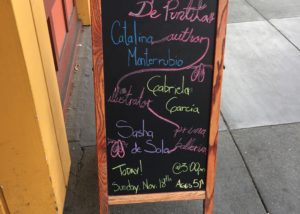 De Puntitas
Catalina author
Monterrubio
Gabriela
illustrator Garcia
Sasha prima
de Sola ballerina
Today! @3:00pm
Sunday, Nov. 18th Ages 5↑